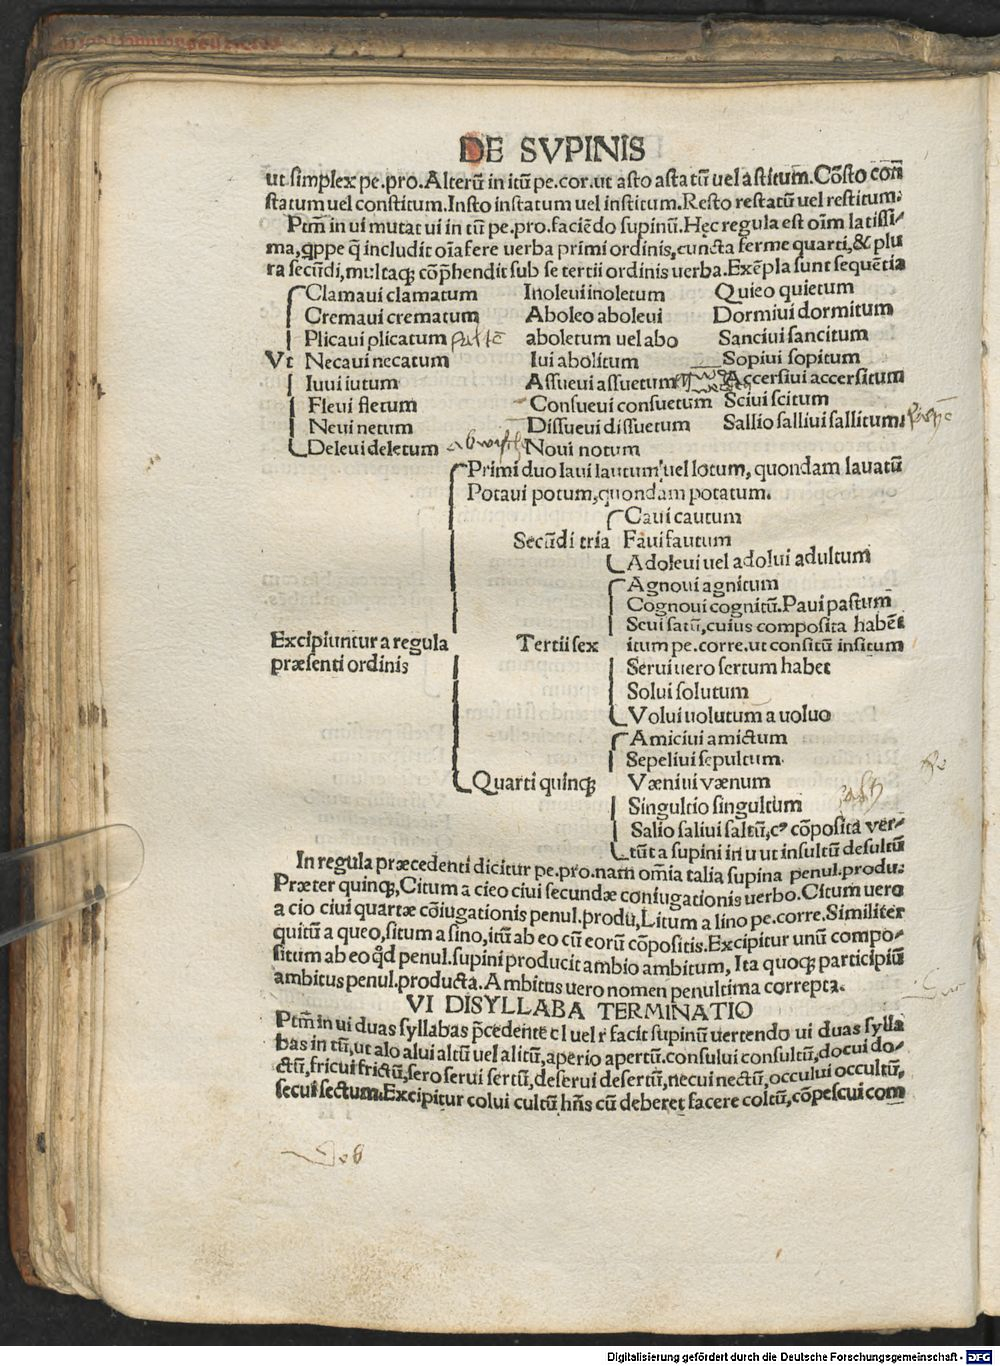 DE SVPINIS
ut simplex pe.pro.Alterū in itū pe.cor.ut asto astatū uel astitum.Cōsto con
statum uel constitum.Insto instatum uel institum.Resto restatū uel restitum.
Ptm̄ in ui mutat ui in tū pe.pro.faciēdo supinū.Hęc regula est oīm latissi-
ma,qppe q̄ includit oīa fere uerba primi ordinis,cuncta ferme quarti,& plu
ra secūdi,multaqꝫ cōp̄hendit sub se tertii ordinis uerba.Exēpla sunt sequētia
Vt
Clamaui clamatum
Cremaui crematum
Plicaui plicatum
Necaui necatum
Iuui iutum
Fleui fletum
Neui netum
Deleui deletum
Inoleui inoletum
Aboleo aboleui
aboletum uel abo
lui abolitum
Assueui assuetum
Consueui consuetum
Dissueui dissuetum
Noui notum
Quieo quietum
Dormiui dormitum
Sanciui sancitum
Sopiui sopitum
Accersiui accersitum
Sciui scitum
Sallio salliui sallitum.
Excipiuntur a regula
præsenti ordinis
Primi duo laui lautum uel lotum, quondam lauatū
Potaui potum,quondam potatum.
Secūdi tria
Caui cautum
Faui fautum
Adoleui uel adolui adultum
Tertii sex
Agnoui agnitum
Cognoui cognitū.Paui pastum
Seui satū,cuius composita habēt
itum pe.corre.ut consitū insitum
Serui uero sertum habet
Solui solutum
Volui uolutum a uoluo
Quarti quinqꝫ
Amiciui amictum
Sepeliui sepultum.
Væniui vænum
Singultio singultum
Salio saliui saltū,cꝰ cōposita ver-
tūt a supini in u ut insultū desultū
In regula præcedenti dicitur pe.pro.nam om̄ia talia supina penul.produ.
Præter quinqꝫ,Citum a cieo ciui secundæ coniugationis uerbo.Citum uero
a cio ciui quartæ cōiugationis penul.ꝓdu,Litum a lino pe.corre.Similiter
quitū a queo,situm a sino,itū ab eo cū eorū cōpositis.Excipitur unū compo-
situm ab eo qd̄ penul.supini producit ambio ambitum, Ita quoqꝫ participiū
ambitus penul.producta.Ambitus uero nomen penultima correpta.
VI DISYLLABA TERMINATIO
Ptm̄ in ui duas syllabas p̄cedente c l uel r facit supinū uertendo ui duas sylla
bas in tū,ut alo alui altū uel alitū,aperio apertū.consului consultū,docui do-
ctū,fricui frictū,sero serui sertū,deserui desertū,necui nectū,occului occultū,
secui sectum.Excipitur colui cultū hn̄s cū deberet facere coltū,cōpescui com
Digitalisierung gefördert durch die Deutsche Forschungsgemeinschaft - DFG